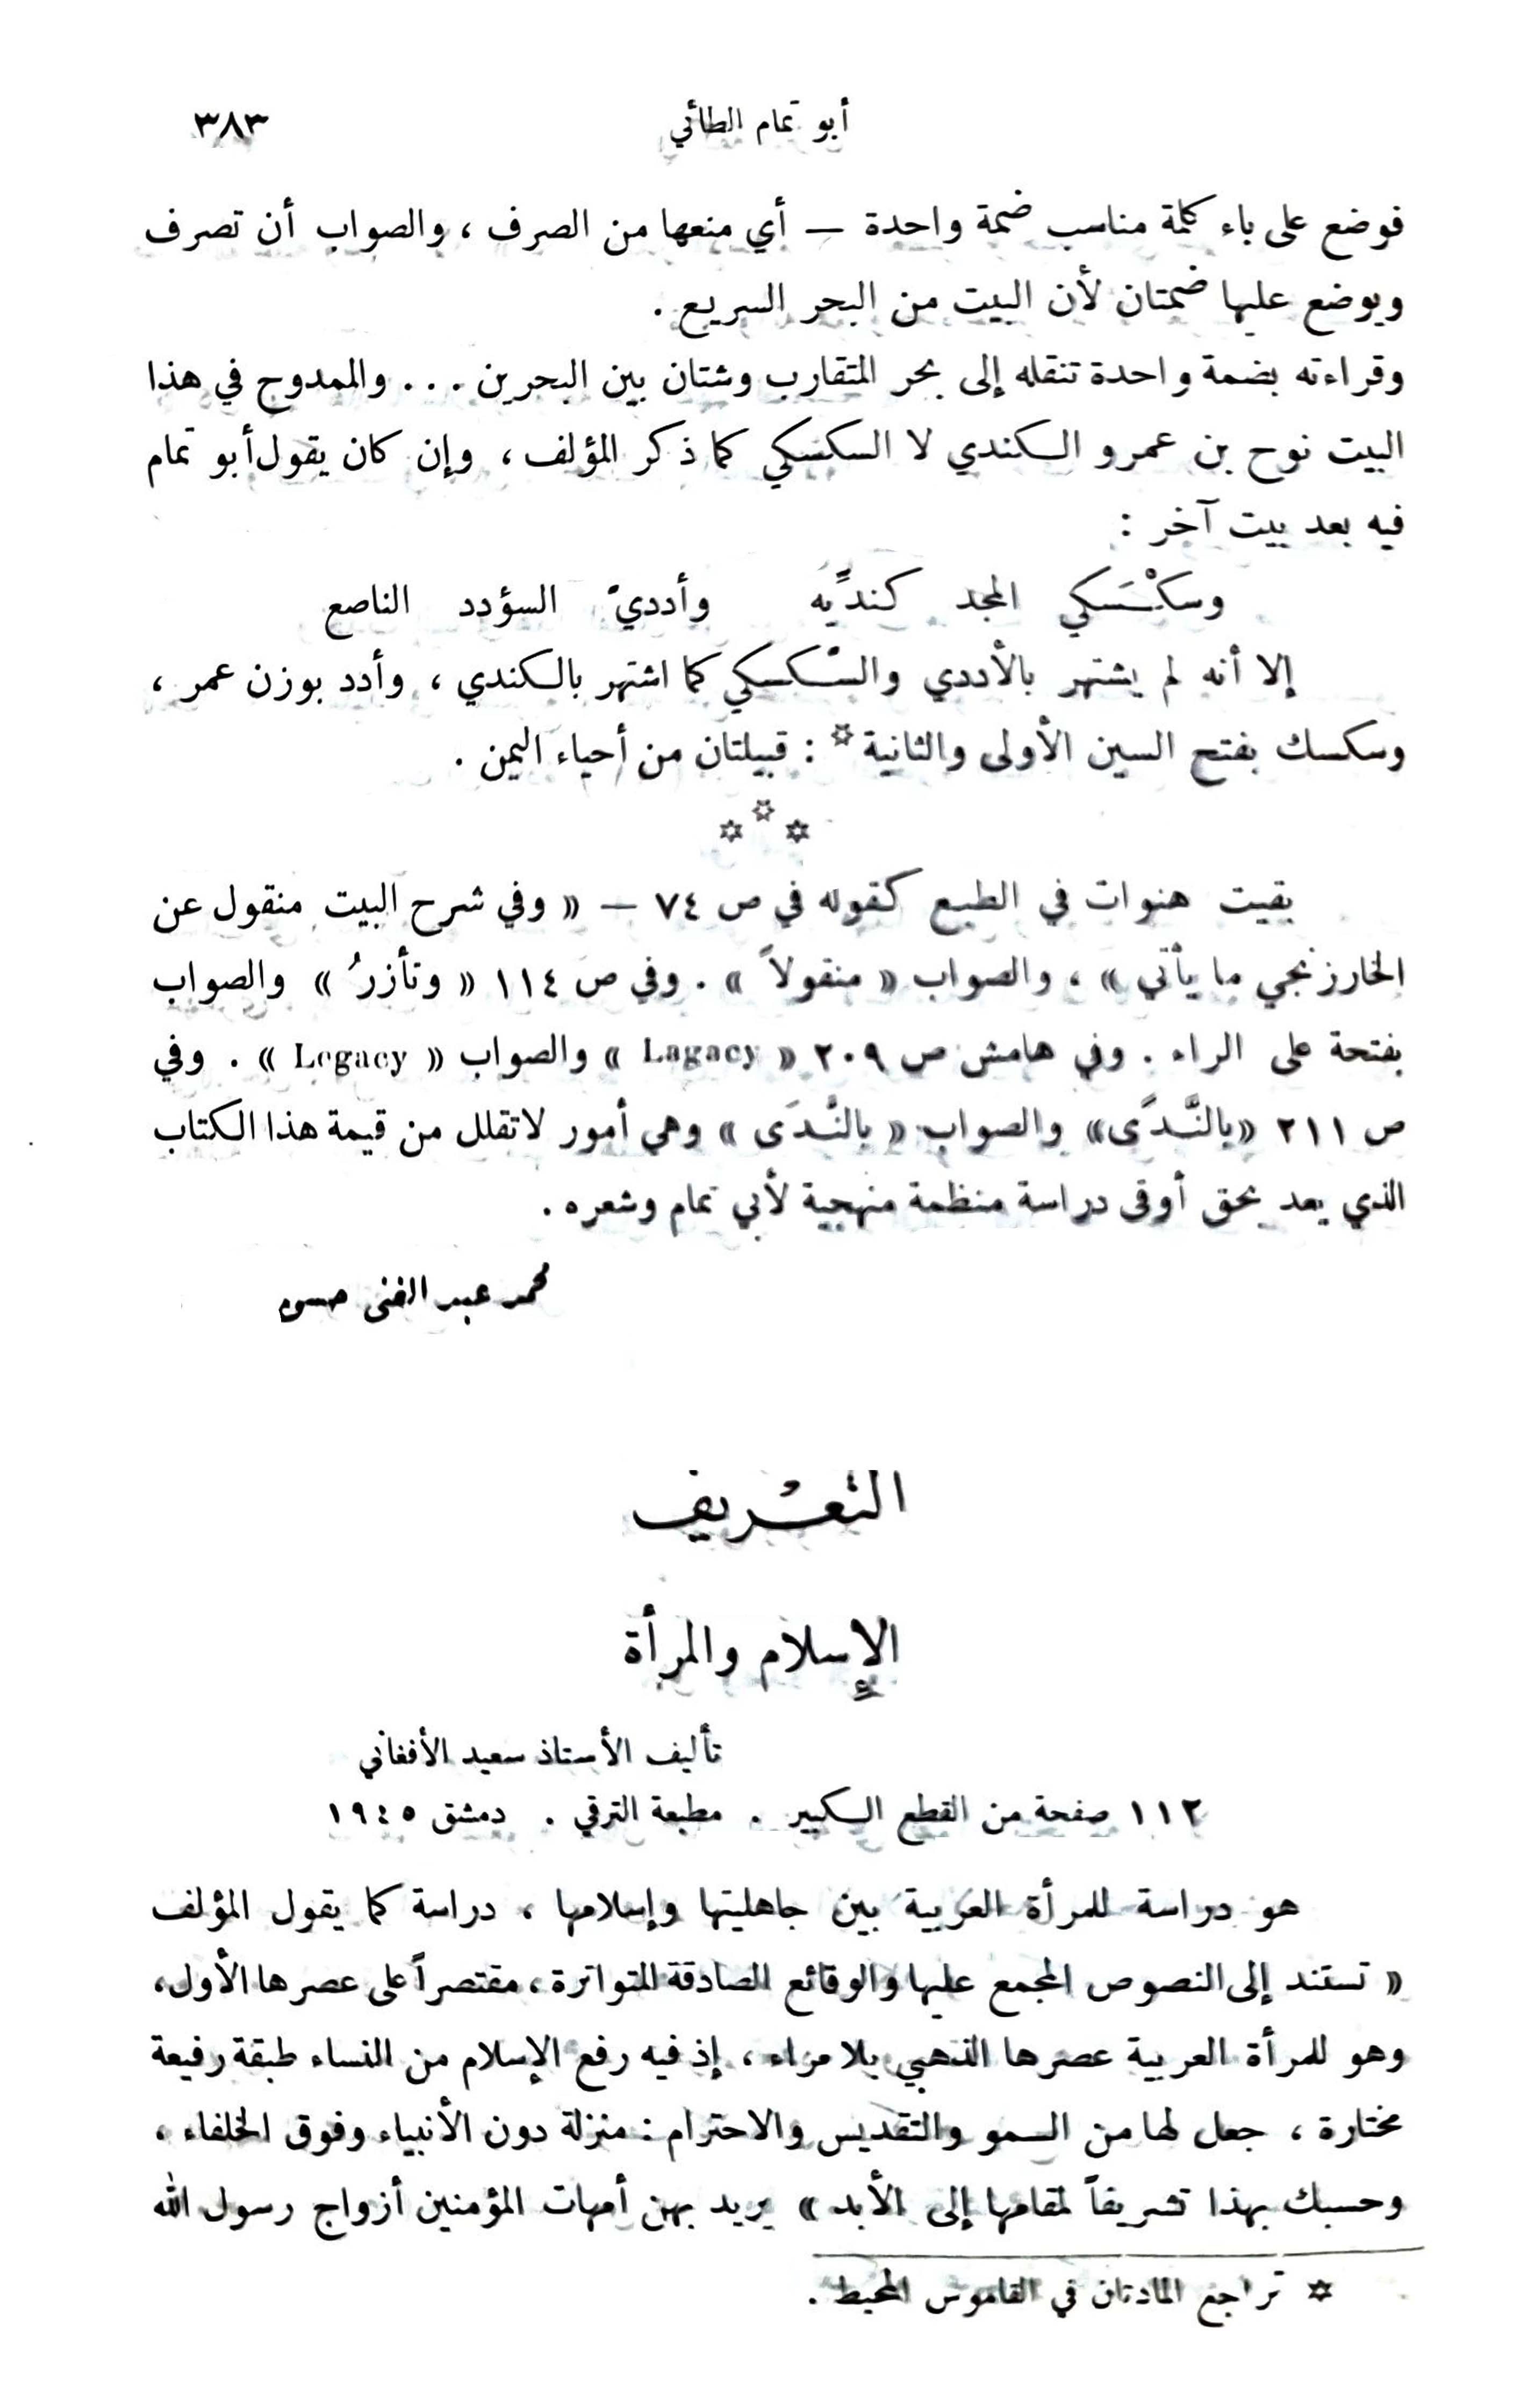 أبو تمام الطائي ٣٨٣
فوضع على باء كلمة مناسب ضمة واحدة — أي منعها من الصرف ، والصواب أن تصرف
ويوضع عليها ضمتان لأن البيت من البحر السريع .
وقراءته بضمة واحدة تنقله إلى بحر المتقارب وشتان بين البحرين ... والممدوح في هذا
البيت نوح بن عمرو الكندي لا السكسكي كما ذكر المؤلف ، وإن كان يقول أبو تمام
فيه بعد بيت آخر :
وسكْسَكي المجد كنديّه وأدديّ السؤدد الناصع
إلا أنه لم يشتهر بالأددي والسكسكي كما اشتهر بالكندي ، وأدد بوزن عمر ،
وسكسك بفتح السين الأولى والثانية * : قبيلتان من أحياء اليمن .
* * *
بقيت هنوات في الطبع كقوله في ص ٧٤ — « وفي شرح البيت منقول عن
الخارزنجي ما يأتي » ، والصواب « منقولاً » . وفي ص ١١٤ « وتأزرُ » والصواب
بفتحة على الراء . وفي هامش ص ٢٠٩ « Lagacy » والصواب « Legacy » . وفي
ص ٢١١ «بالنَّدًى» والصواب « بالنَّدَى » وهي أمور لا تقلل من قيمة هذا الكتاب
الذي يعد بحق أوفى دراسة منظمة منهجية لأبي تمام وشعره .
محمد عبد الغنى حسن
التعْريف
الإسلام والمرأة
تأليف الأستاذ سعيد الأفغاني
١١٢ صفحة من القطع الكبير . مطبعة الترقي . دمشق ١٩٤٥
هو دراسة للمرأة العربية بين جاهليتها وإسلامها ، دراسة كما يقول المؤلف
« تستند إلى النصوص المجمع عليها والوقائع الصادقة المتواترة ، مقتصراً على عصرها الأول،
وهو للمرأة العربية عصرها الذهبي بلا مراء ، إذ فيه رفع الإسلام من النساء طبقة رفيعة
مختارة ، جعل لها من السمو والتقديس والاحترام : منزلة دون الأنبياء وفوق الخلفاء ،
وحسبك بهذا تشريفاً لمقامها إلى الأبد » يريد بهن أمهات المؤمنين أزواج رسول الله
* تراجع المادتان في القاموس المحيط .